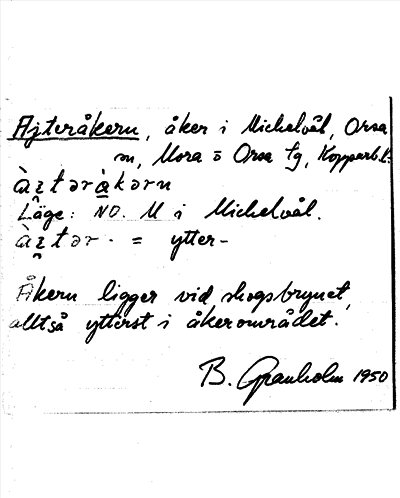 Ajteråkern, åker i Michelvål, Orsa
sn, Mora o Orsa tg, Kopparb. l.
àı̯təràkərn
Läge: NO. M i Michelvål.
àı̯tər- = ytter-
Åkern ligger vid skogsbrynet,
alltså ytterst i åkerområdet.
B. Granholm 1950